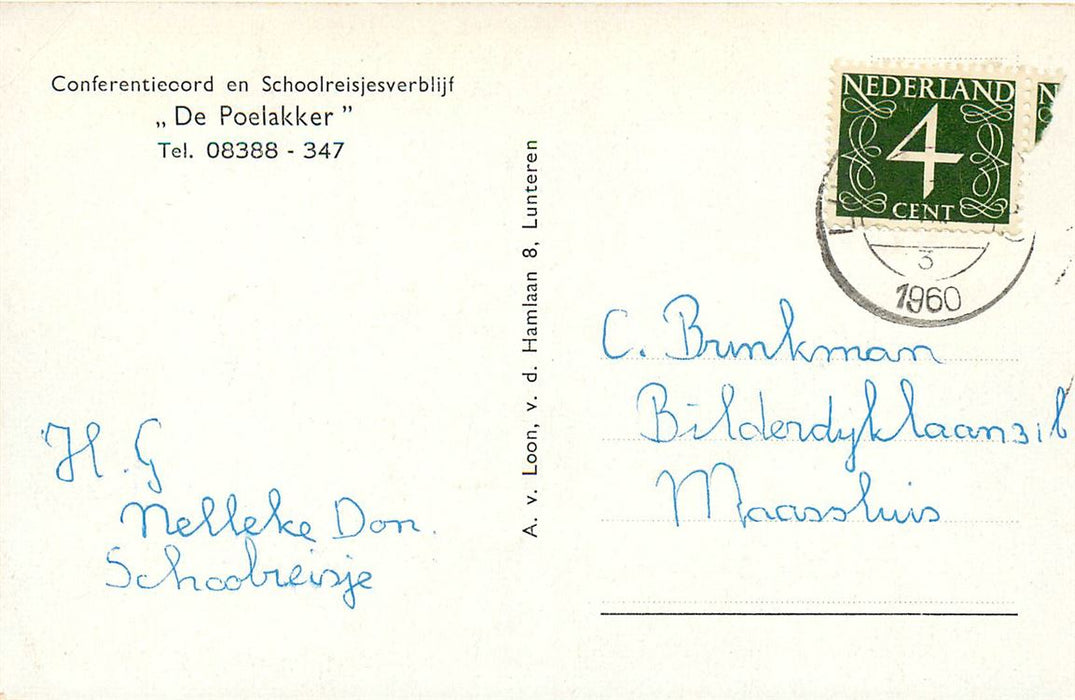 Conferentieoord en Schoolreisjesverblijf
„De Poelakker”
Tel. 08388 - 347
A. v. Loon, v. d. Hamlaan 8, Lunteren
NEDERLAND
4
CENT
N
3
1960
C. Brinkman
Bilderdyklaan
Maassluis
H. G
Nelleke Don.
Schoolreisje